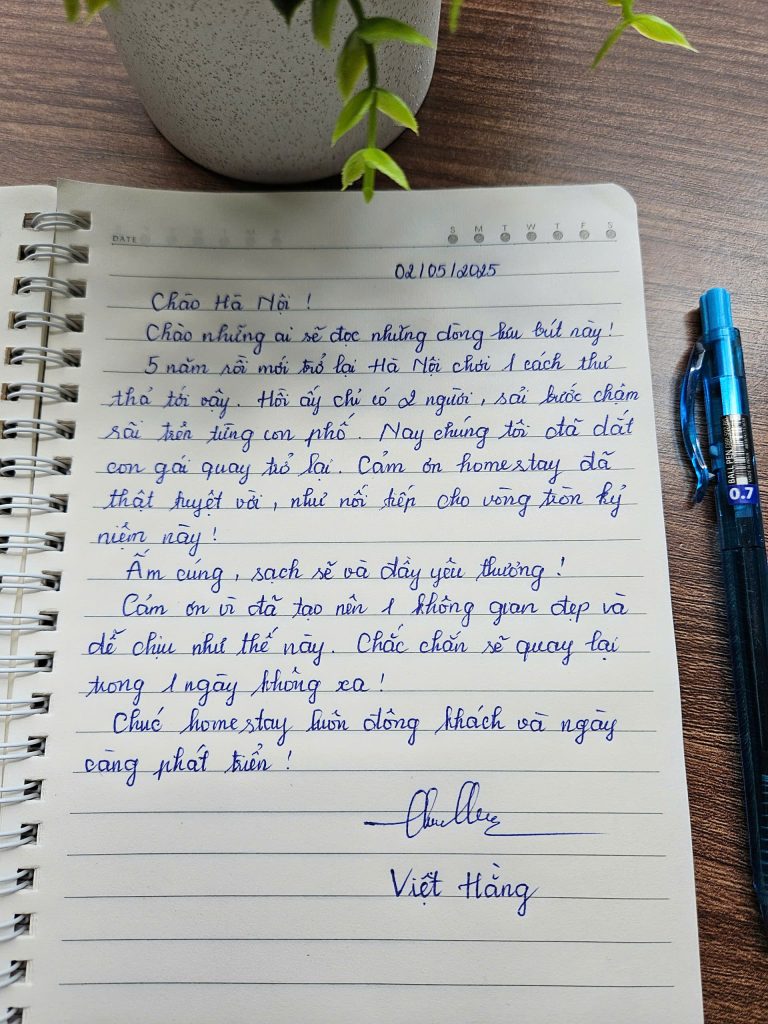 DATE
S M T W T F S
02/05/2025
Chào Hà Nội !
Chào những ai sẽ đọc những dòng lưu bút này !
5 năm rồi mới trở lại Hà Nội chơi 1 cách thư
thả tới vậy. Hồi ấy chỉ có 2 người, sải bước chậm
rãi trên từng con phố. Nay chúng tôi đã dắt
con gái quay trở lại. Cảm ơn homestay đã
thật tuyệt vời, như nối tiếp cho vòng tròn kỷ
niệm này !
Ấm cúng, sạch sẽ và đầy yêu thương !
Cảm ơn vì đã tạo nên 1 không gian đẹp và
dễ chịu như thế này. Chắc chắn sẽ quay lại
trong 1 ngày không xa !
Chúc homestay luôn đông khách và ngày
càng phát triển !
Việt Hằng
BALL PEN
0.7